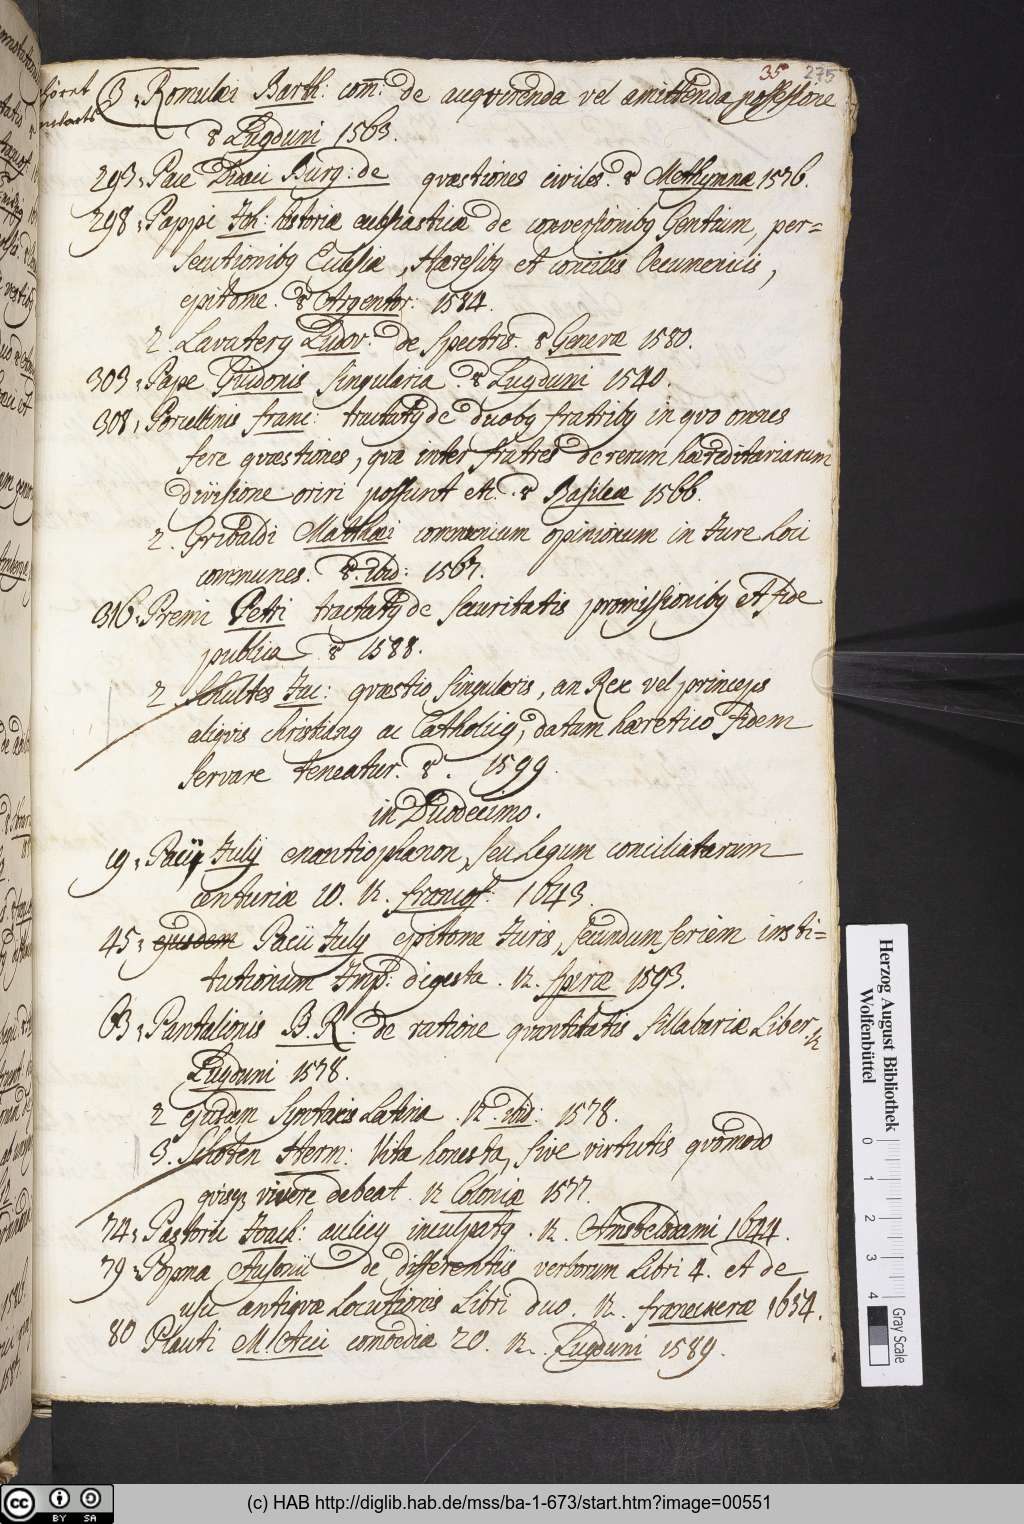 35 275
3. Romulæi Barth: com: de acqvirenda vel amittenda possessione
8 Lugduni 1563.
293. Pace Didaci Burg: de qvæstiones civiles. 8 Methymnæ 1576.
298. Pappi Joh: historiæ ecclesiasticæ de conversionibq Gentium, per=
secutionibq Ecclesiæ, Hæresibq et conciliis Oecumenicis,
epitome. 8 Argentor: 1584.
2. Lavaterq Ludov: de spectris. 8 Genevæ 1580.
303. Pape Guidonis singularia. 8 Lugduni 1540.
308. Porcellinis franc: tractatq de duobq fratribq in qvo omnes
fere qvæstiones, qvæ inter fratres de rerum hæreditariarum
divisione oriri possunt etc. 8 Basileæ 1566.
2. Gribaldi Matthæi communium opinionum in Jure Loci
communes. 8. ibid: 1567.
316. Premi Petri tractatq de securitatis promissionibq et fide
publica 8 1588.
2. Schultes Jac: qvæstio singularis, an Rex vel princeps
aliqvis christianq ac Catholicq, datam hæretico fidem
servare teneatur. 8. 1599.
in Duodecimo.
19. Pacij Julij enantiophanon, seu legum conciliatarum
centuriæ 10. 12. francof: 1643.
45. ejusdem Pacii Julij epitome Juris, secundum seriem insti=
tutionum Imp: digesta. 12. Spiræ 1593.
63. Pantalionis B. R. de ratione qvantitatis sillabariæ Liber. 12
Lugduni 1578.
2 ejusdem Syntaxis Latina 12. ibid: 1578.
3. Schoten Herm: Vita honesta, sive virtutis qvomodo
qvisq; vivere debeat. 12 Coloniæ 1577.
74. Pastorii Joach: aulicq inculpatq. 12. Amsteldami 1644.
79. Popma Ausonii de differentiis verborum Libri 4. et de
usu antiqvæ Locutionis Libri duo. 12. franekeræ 1654.
80 Plauti M. Acci comoediæ 20. 12. Lugduni 1589.
Herzog August Bibliothek
Wolfenbüttel
0 1 2 3 4
Gray Scale
CC BY SA
(c) HAB http://diglib.hab.de/mss/ba-1-673/start.htm?image=00551